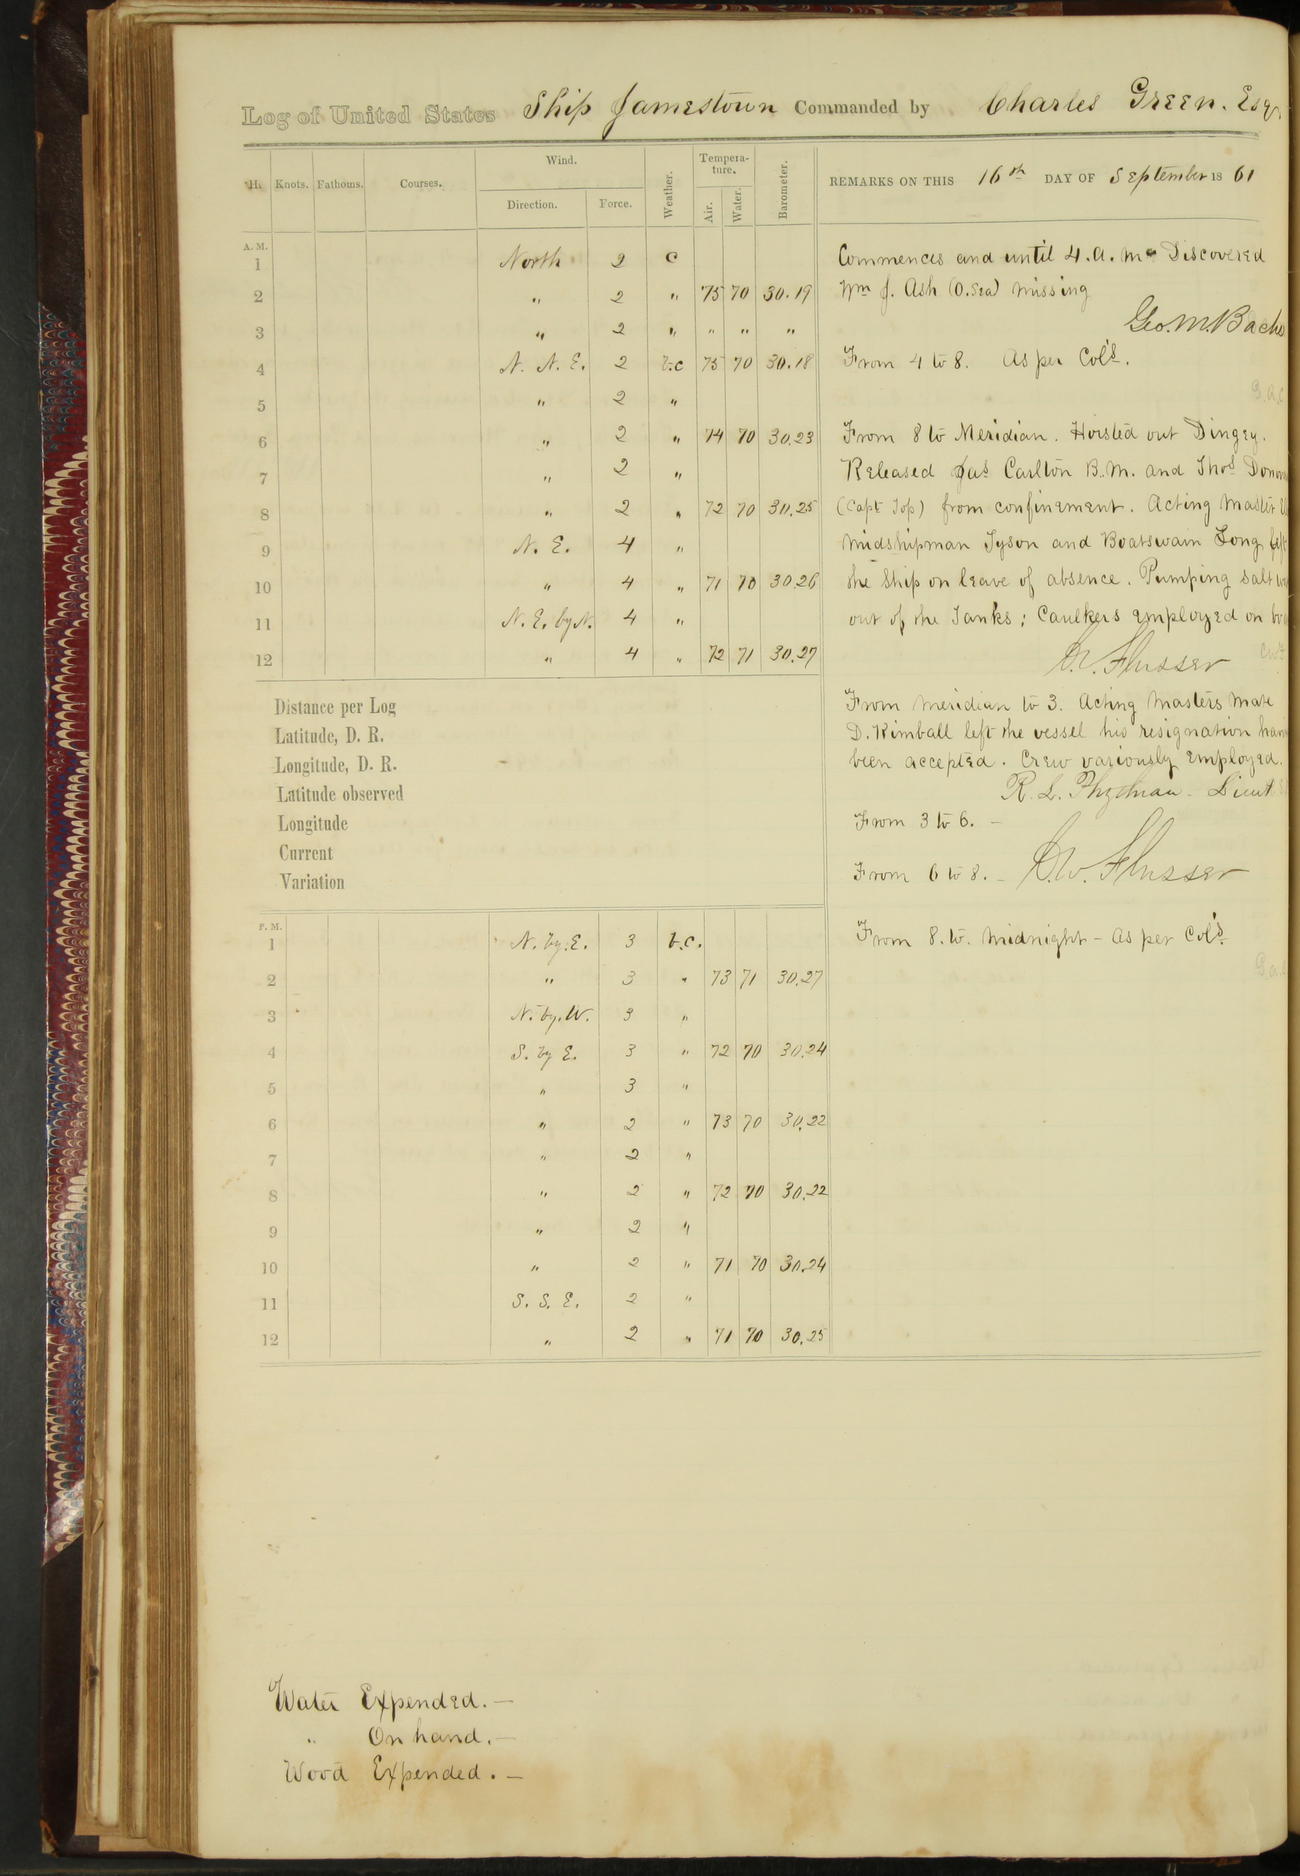 Log of United States Ship Jamestown Commanded by Charles Green. Esq.
H. Knots. Fathoms. Courses. Wind. Direction. Force. Weather. Temperature. Air. Water. Barometer. REMARKS ON THIS 16th DAY OF September 18 61
A. M.
1 North 2 c
2 " 2 " 75 70 30.19
3 " 2 " " " "
4 N. N. E. 2 b.c 75 70 30.18
5 " 2 "
6 " 2 " 74 70 30.23
7 " 2 "
8 " 2 " 72 70 30.25
9 N. E. 4 "
10 " 4 " 71 70 30.26
11 N. E. by N. 4 "
12 " 4 " 72 71 30.27
Commences and until 4. a. m. Discovered
Wm J. Ash (O. Sea) missing
Geo. M. Bache
From 4 to 8. As per Col's.
From 8 to Meridian. Hoisted out Dingey.
Released Jas Carlton B. M. and Thos
(Capt Top) from confinement. Acting Master
Midshipman Tyson and Boatswain Long left
the Ship on leave of absence. Pumping salt
out of the Tanks; Caulkers employed on
C. W. Flusser
From meridian to 3. Acting Masters Mate
D. Kimball left the vessel his resignation
been accepted. Crew variously employed.
R. L. Phythian Lieut
From 3 to 6. –
From 6 to 8. – C. W. Flusser
From 8. to. Midnight – as per Col's
Distance per Log
Latitude, D. R.
Longitude, D. R.
Latitude observed
Longitude
Current
Variation
P. M.
1 N. by. E. 3 b.c.
2 " 3 " 73 71 30.27
3 N. by. W. 3 "
4 S. by E. 3 " 72 70 30.24
5 " 3 "
6 " 2 " 73 70 30.22
7 " 2 "
8 " 2 " 72 70 30.22
9 " 2 "
10 " 2 " 71 70 30.24
11 S. S. E. 2 "
12 " 2 " 71 70 30.25
Water Expended. –
" On hand. –
Wood Expended. –